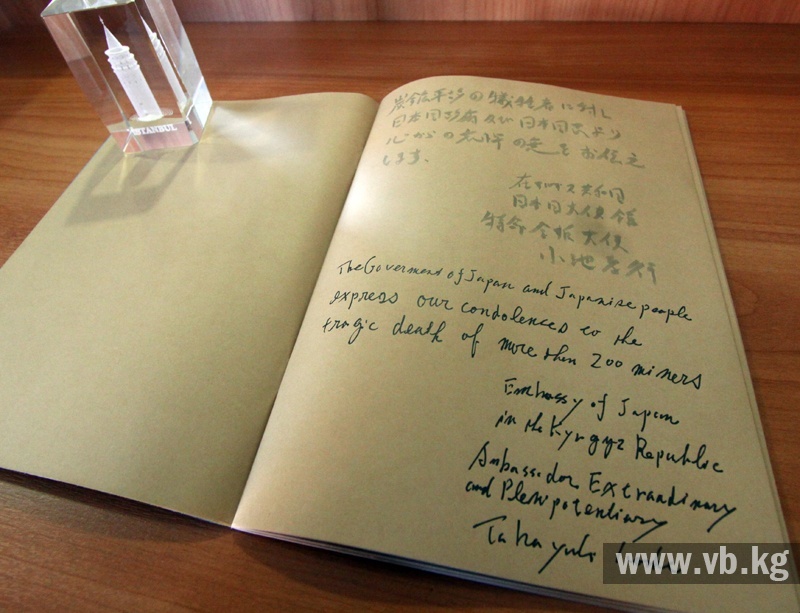 ISTANBUL
炭鉱事故の犠牲者に対し
日本国政府及び日本国民より
心からの哀悼の意をお伝え
します.
共和国
日本国大使館
特命全権大使
小池孝行
The Goverment of Japan and Japanese people
express our condolences to the
tragic death of more then 200 miners
Embassy of Japan
in the Kyrgyz Republic
Ambassador Extraordinary
and Plenipotentiary
Takayuki
www.vb.kg